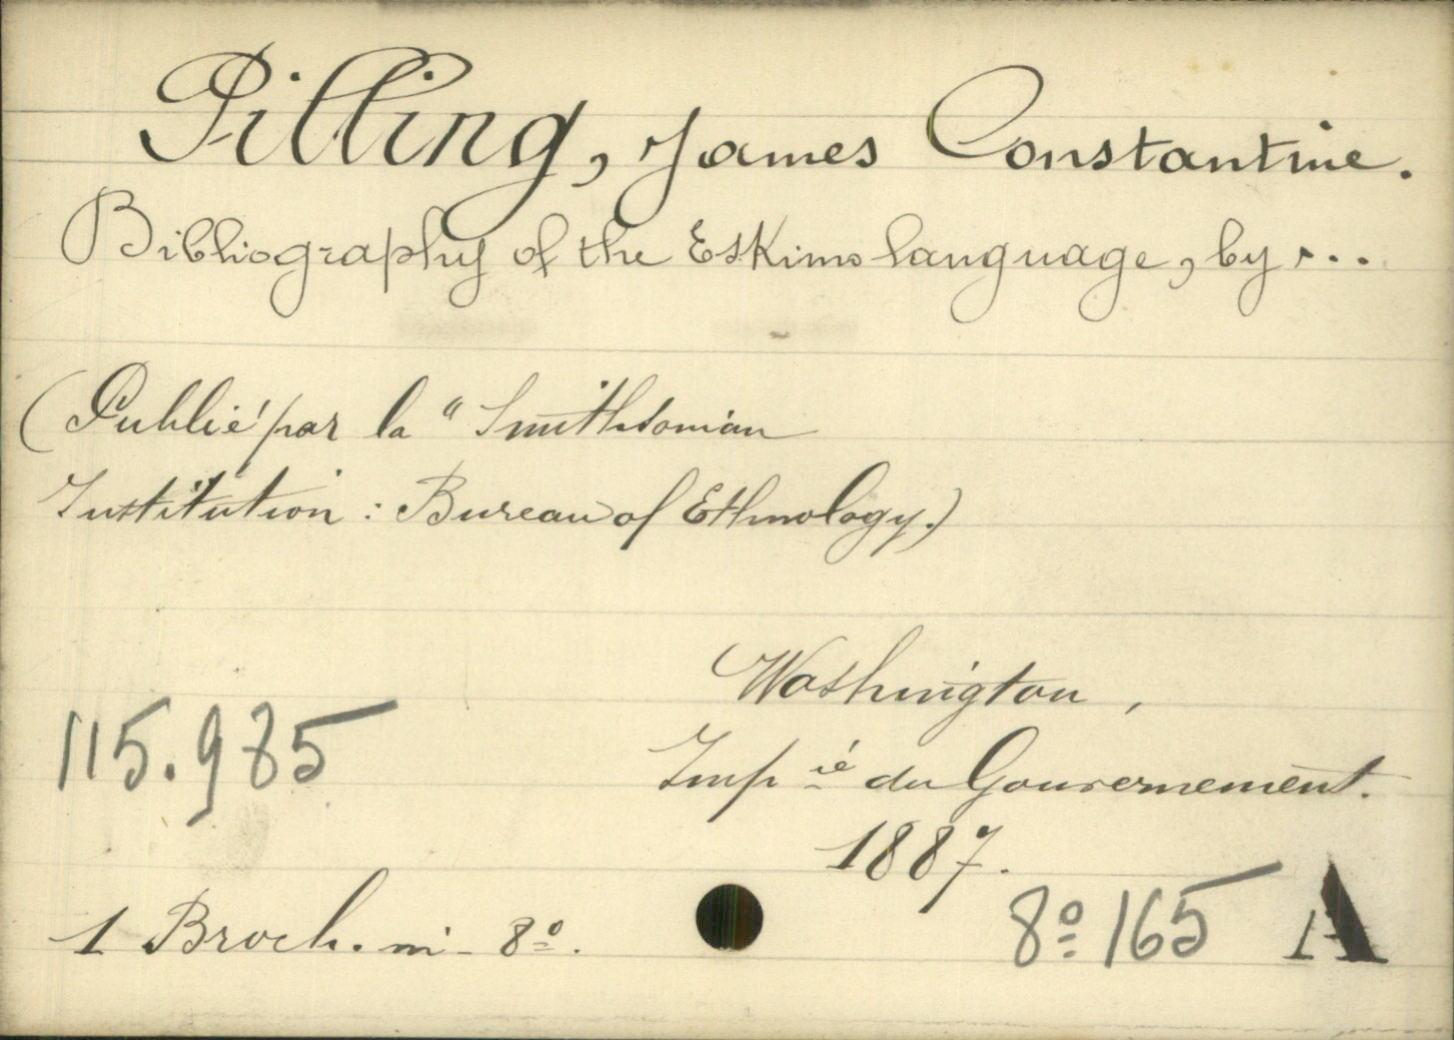 Pilling, James Constantine.
Bibliography of the Eskimo language, by ...
(Publié par la "Smithsonian
Institution : Bureau of Ethnology.)
Washington,
Impié du Gouvernement.
1887.
115.985
1 Broch. in-8º.
8º 165 A